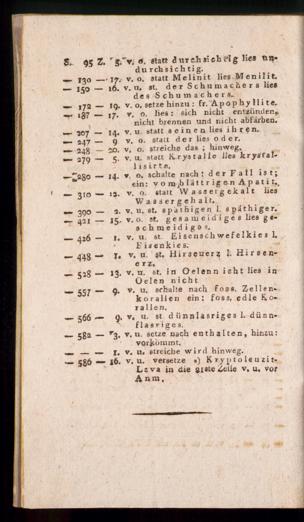 S. 95 Z. 5. v. o. statt durchsichtig lies un-
durchsichtig.
— 130 — 17. v. o. statt Melinit lies Menilit.
— 150 — 16. v. u. st. der Schumachers lies
des Schumachers.
— 172 — 19. v. o. setze hinzu: fr. Apophyllite.
— 187 — 17. v. o. lies: sich nicht entzünden,
nicht brennen und nicht abfärben.
— 207 — 14. v. u. statt seinen lies ihren.
— 247 — 9 v. o. statt der lies oder.
— 248 — 20. v. o. streiche das ; hinweg.
— 279 — 5. v. u. statt Krystalle lies krystal-
lisirte.
— 280 — 14. v. o. schalte nach: der Fall ist;
ein: vom blättrigen Apatit.
— 310 — 12. v. o. statt Wassergekalt lies
Wassergehalt.
— 390 — 2. v. u. st. späthigen l. späthiger.
— 421 — 15. v. o. st. gesameidiges lies ge-
schmeidiges.
— 426 — 1. v. u. st. Eisenschwefelkies l.
Eisenkies.
— 448 — 1. v. u. st. Hirseuerz l. Hirsen-
erz.
— 528 — 13. v. u. st. in Oelenn icht lies in
Oelen nicht
— 557 — 9. v. u. schalte nach foss. Zellen-
koralien ein: foss. edle Ko-
rallen.
— 566 — 9. v. u. st dünnlasriges l. dünn-
flasriges.
— 582 — 3. v. u. setze nach enthalten, hinzu:
vorkömmt.
— — — 1. v. u. streiche wird hinweg.
— 586 — 16. v. u. versetze *) Kryptoleuzit-
Lava in die 21ste Zeile v. u. vor
Anm.